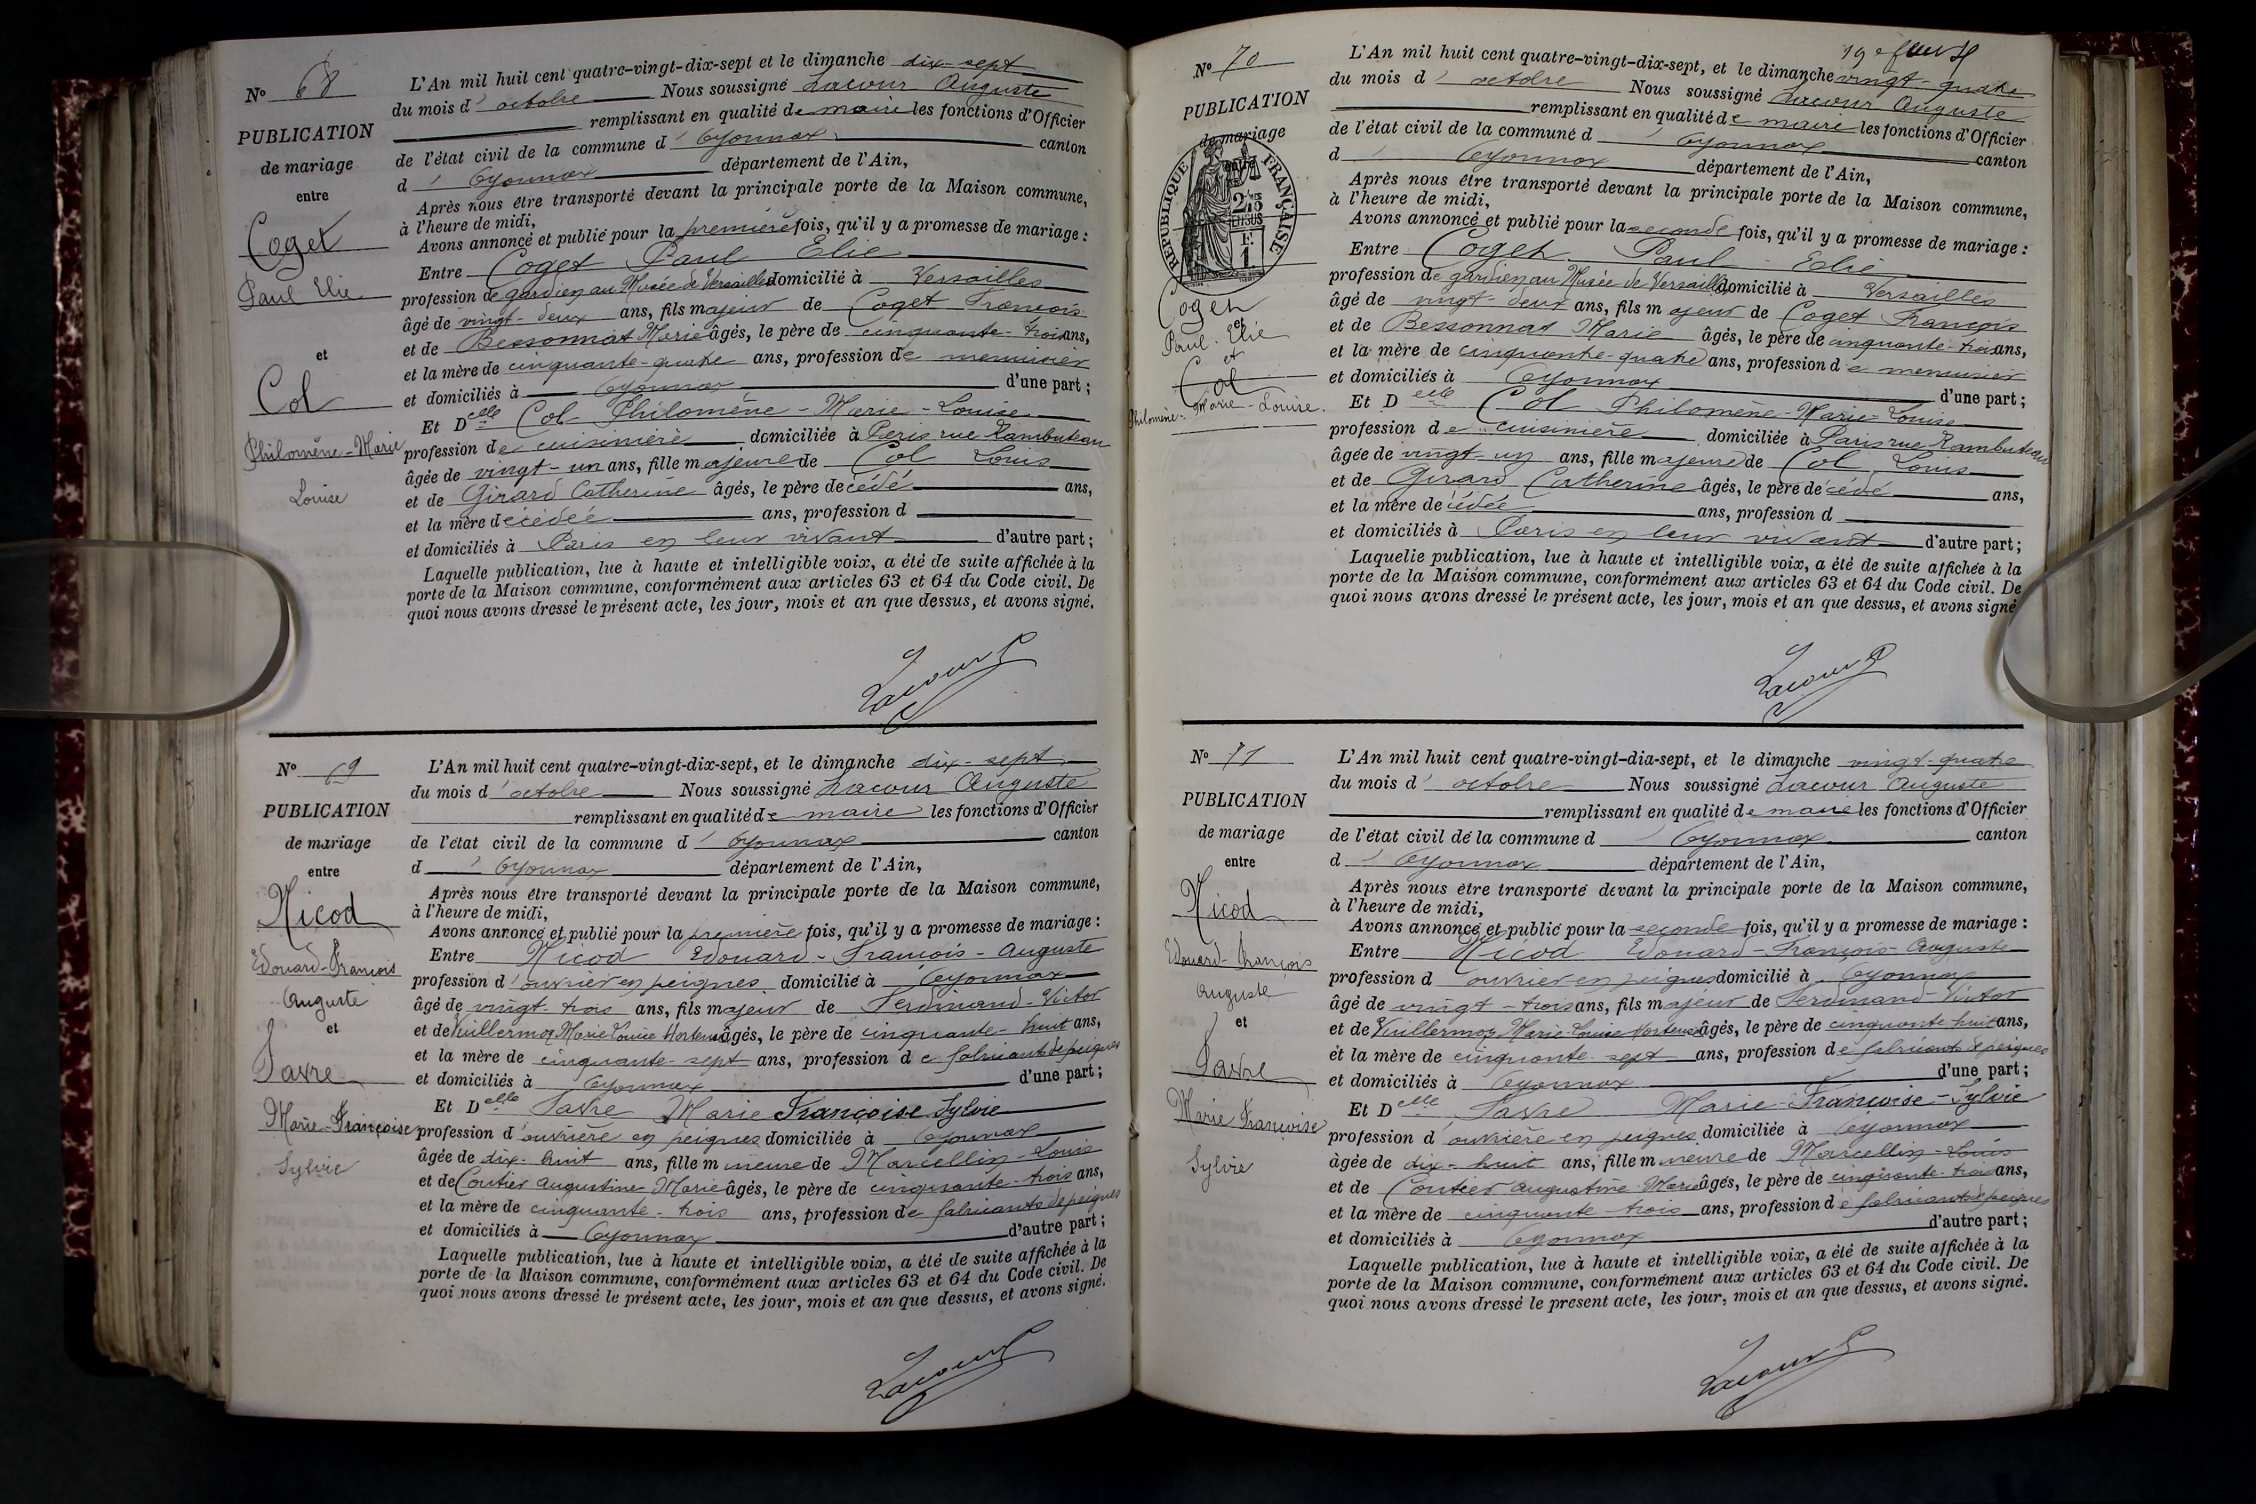 N° 68
PUBLICATION
de mariage
entre
Coget
Paul Elie
et
Col
Philomène-Marie
Louise
L'An mil huit cent quatre-vingt-dix-sept et le dimanche dix-sept
du mois d'octobre Nous soussigné Lacour Auguste
remplissant en qualité de maire les fonctions d'Officier
de l'état civil de la commune d'Oyonnax canton
d'Oyonnax département de l'Ain,
Après nous être transporté devant la principale porte de la Maison commune,
à l'heure de midi,
Avons annoncé et publié pour la première fois, qu'il y a promesse de mariage :
Entre Coget Paul Elie
profession de gardien au Musée de Versailles domicilié à Versailles
âgé de vingt-deux ans, fils majeur de Coget François
et de Bessonnat Marie âgés, le père de cinquante-trois ans,
et la mère de cinquante-quatre ans, profession de menuisier
et domiciliés à Oyonnax d'une part ;
Et Delle Col Philomène-Marie-Louise
profession de cuisinière domiciliée à Paris rue Rambuteau
âgée de vingt-un ans, fille majeure de Col Louis
et de Girard Catherine âgés, le père décédé ans,
et la mère décédée ans, profession d
et domiciliés à Paris en leur vivant d'autre part ;
Laquelle publication, lue à haute et intelligible voix, a été de suite affichée à la
porte de la Maison commune, conformément aux articles 63 et 64 du Code civil. De
quoi nous avons dressé le présent acte, les jour, mois et an que dessus, et avons signé.
Lacour
N° 69
PUBLICATION
de mariage
entre
Nicod
Edouard-François
Auguste
et
Favre
Marie-Françoise
Sylvie
L'An mil huit cent quatre-vingt-dix-sept, et le dimanche dix-sept
du mois d'octobre Nous soussigné Lacour Auguste
remplissant en qualité de maire les fonctions d'Officier
de l'état civil de la commune d'Oyonnax canton
d'Oyonnax département de l'Ain,
Après nous être transporté devant la principale porte de la Maison commune,
à l'heure de midi,
Avons annoncé et publié pour la première fois, qu'il y a promesse de mariage :
Entre Nicod Edouard-François-Auguste
profession d'ouvrier en peignes domicilié à Oyonnax
âgé de vingt-trois ans, fils majeur de Ferdinand-Victor
et de Vuillermoz Marie Louise Hortense âgés, le père de cinquante-huit ans,
et la mère de cinquante-sept ans, profession de fabricants de peignes
et domiciliés à Oyonnax d'une part ;
Et Delle Favre Marie Françoise Sylvie
profession d'ouvrière en peignes domiciliée à Oyonnax
âgée de dix-huit ans, fille mineure de Marcellin-Louis
et de Coutier Augustine-Marie âgés, le père de cinquante-trois ans,
et la mère de cinquante-trois ans, profession de fabricants de peignes
et domiciliés à Oyonnax d'autre part ;
Laquelle publication, lue à haute et intelligible voix, a été de suite affichée à la
porte de la Maison commune, conformément aux articles 63 et 64 du Code civil. De
quoi nous avons dressé le présent acte, les jour, mois et an que dessus, et avons signé.
Lacour
N° 70
PUBLICATION
de mariage
entre
RÉPUBLIQUE FRANÇAISE
Coget
Paul-Elie
et
Col
Philomène-Marie-Louise
L'An mil huit cent quatre-vingt-dix-sept, et le dimanche vingt-quatre
du mois d'octobre Nous soussigné Lacour Auguste
remplissant en qualité de maire les fonctions d'Officier
de l'état civil de la commune d'Oyonnax canton
d'Oyonnax département de l'Ain,
Après nous être transporté devant la principale porte de la Maison commune,
à l'heure de midi,
Avons annoncé et publié pour la seconde fois, qu'il y a promesse de mariage :
Entre Coget Paul Elie
profession de gardien au Musée de Versailles domicilié à Versailles
âgé de vingt-deux ans, fils majeur de Coget François
et de Bessonnat Marie âgés, le père de cinquante-trois ans,
et la mère de cinquante-quatre ans, profession de menuisier
et domiciliés à Oyonnax d'une part ;
Et Delle Col Philomène-Marie-Louise
profession de cuisinière domiciliée à Paris rue Rambuteau
âgée de vingt-un ans, fille majeure de Col Louis
et de Girard Catherine âgés, le père décédé ans,
et la mère décédée ans, profession d
et domiciliés à Paris en leur vivant d'autre part ;
Laquelle publication, lue à haute et intelligible voix, a été de suite affichée à la
porte de la Maison commune, conformément aux articles 63 et 64 du Code civil. De
quoi nous avons dressé le présent acte, les jour, mois et an que dessus, et avons signé
Lacour
N° 71
PUBLICATION
de mariage
entre
Nicod
Edouard-François
Auguste
et
Favre
Marie Françoise
Sylvie
L'An mil huit cent quatre-vingt-dix-sept, et le dimanche vingt-quatre
du mois d'octobre Nous soussigné Lacour Auguste
remplissant en qualité de maire les fonctions d'Officier
de l'état civil de la commune d'Oyonnax canton
d'Oyonnax département de l'Ain,
Après nous être transporté devant la principale porte de la Maison commune,
à l'heure de midi,
Avons annoncé et publié pour la seconde fois, qu'il y a promesse de mariage :
Entre Nicod Edouard-François-Auguste
profession d'ouvrier en peignes domicilié à Oyonnax
âgé de vingt-trois ans, fils majeur de Ferdinand-Victor
et de Vuillermoz Marie-Louise Hortense âgés, le père de cinquante-huit ans,
et la mère de cinquante-sept ans, profession de fabricants de peignes
et domiciliés à Oyonnax d'une part ;
Et Delle Favre Marie-Françoise-Sylvie
profession d'ouvrière en peignes domiciliée à Oyonnax
âgée de dix-huit ans, fille mineure de Marcellin-Louis
et de Coutier Augustine Marie âgés, le père de cinquante-trois ans,
et la mère de cinquante-trois ans, profession de fabricants de peignes
et domiciliés à Oyonnax d'autre part ;
Laquelle publication, lue à haute et intelligible voix, a été de suite affichée à la
porte de la Maison commune, conformément aux articles 63 et 64 du Code civil. De
quoi nous avons dressé le présent acte, les jour, mois et an que dessus, et avons signé.
Lacour